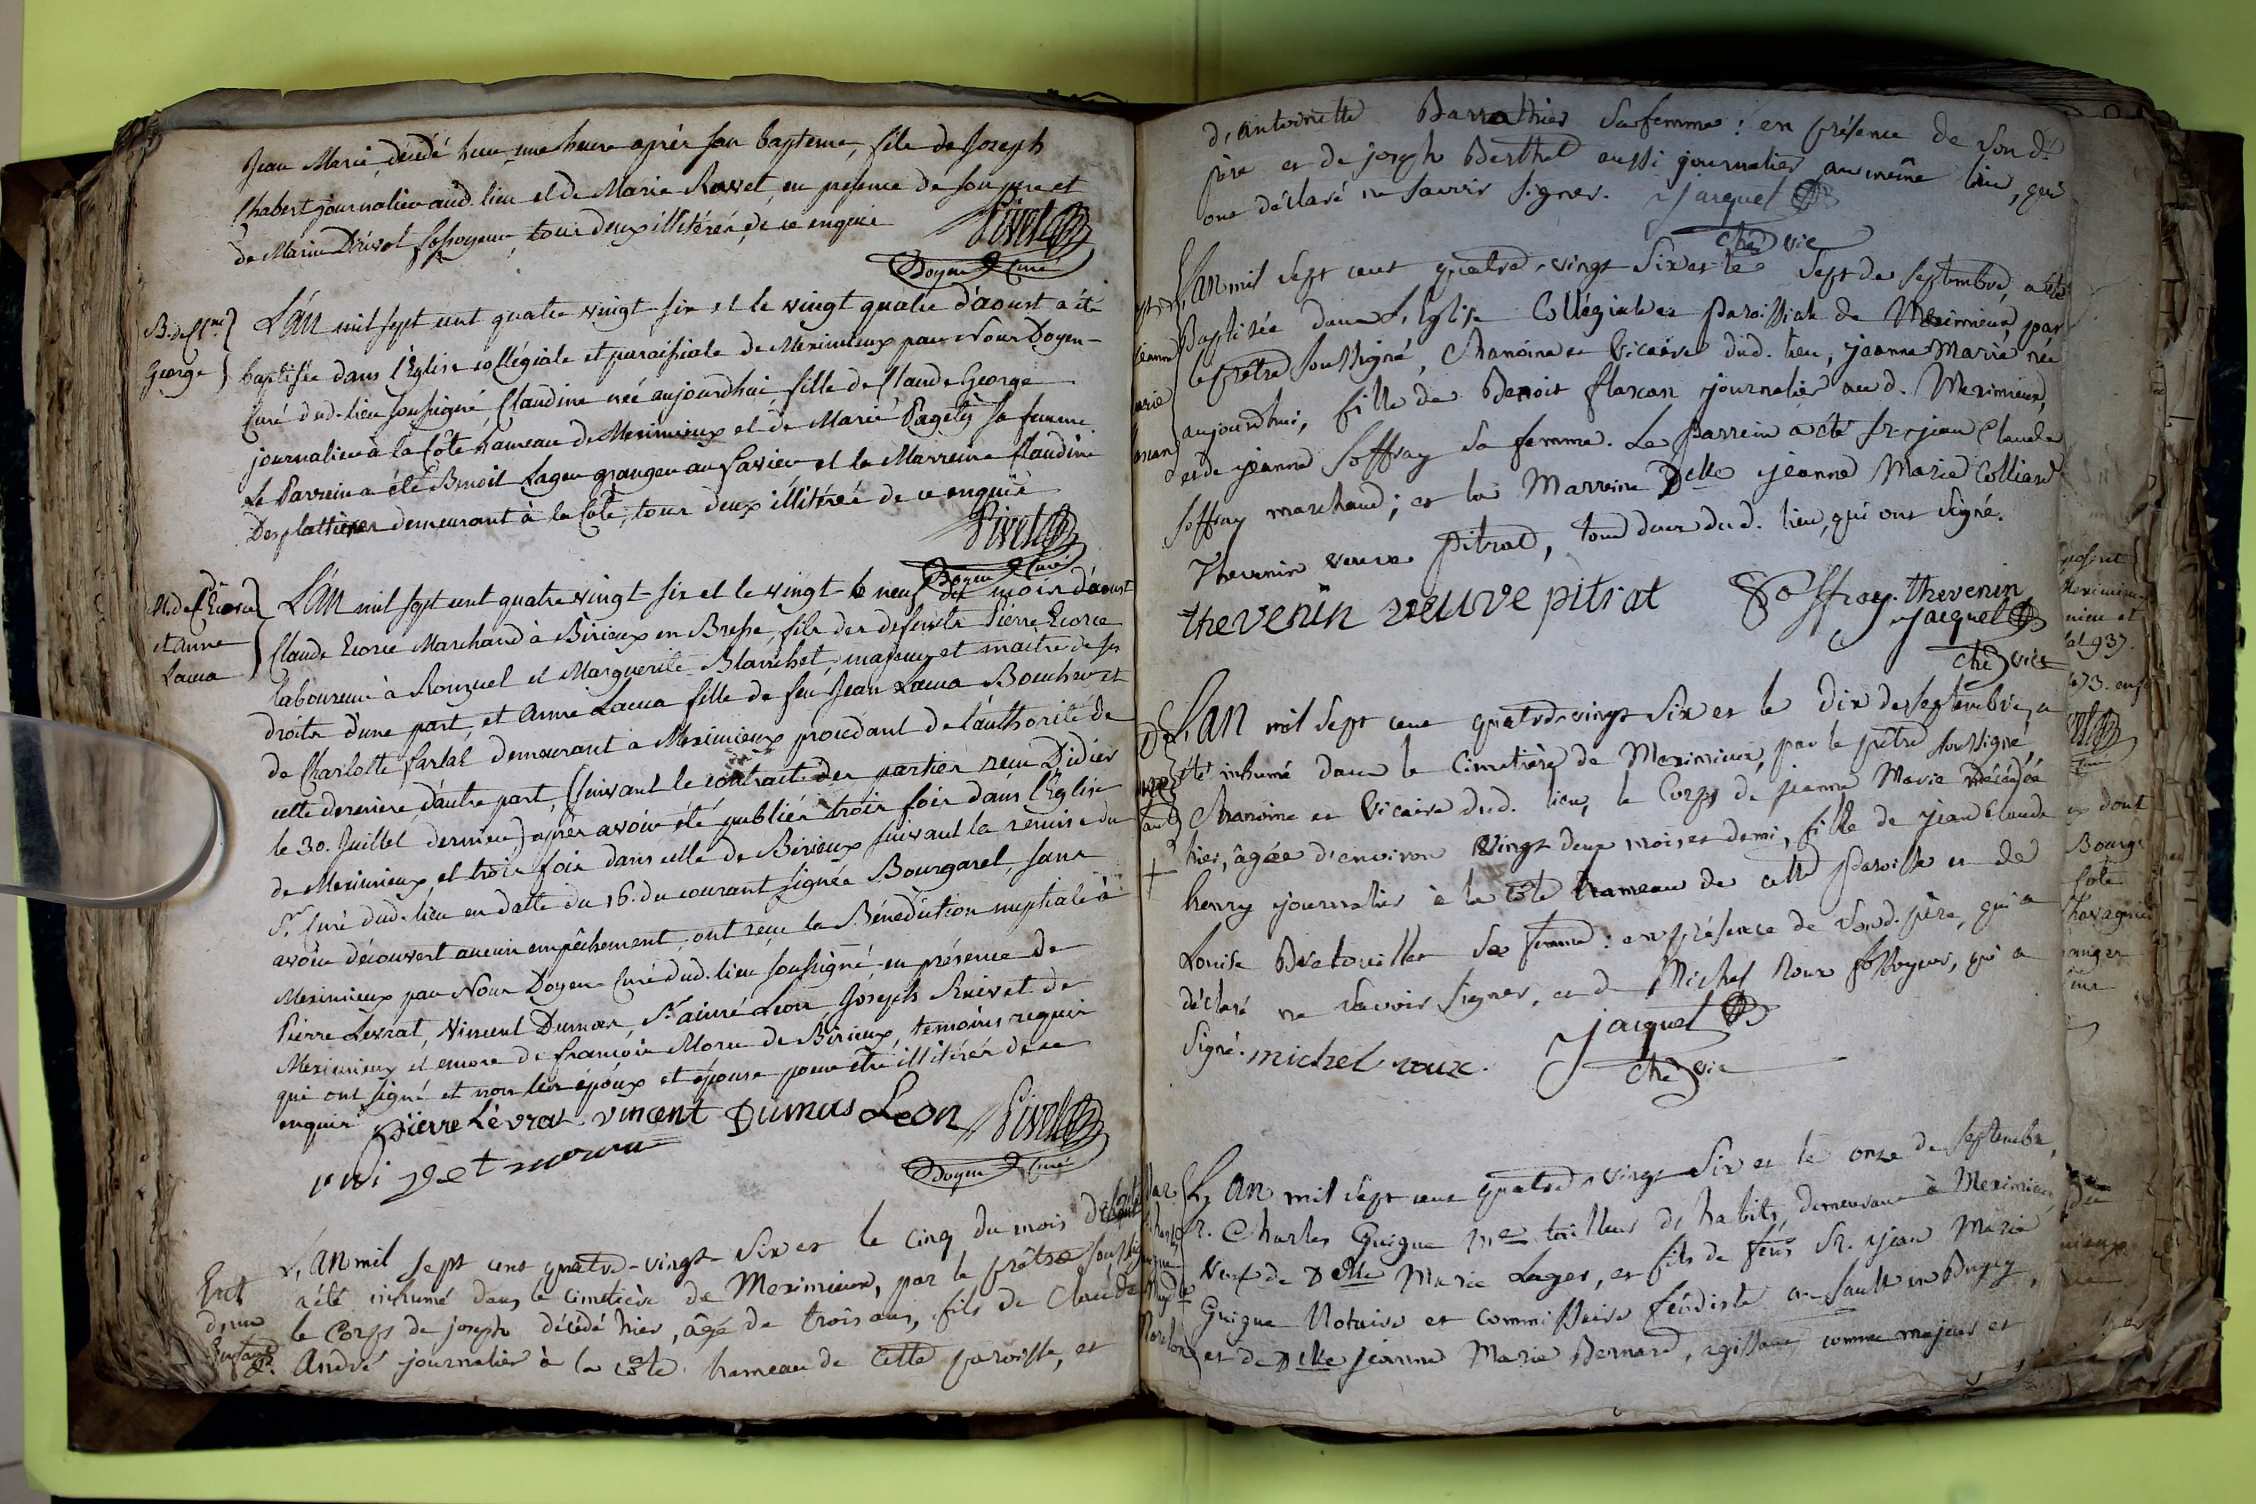 Jean Marie, décédé hier une heure après son baptême, fils de Joseph
Chabert journalier aud. lieu et de Marie Ravet, en présence de son père et
de Marin Drivol fossoyeur, tous deux illitérés, de ce enquis
Pivet
Doyen Curé
B. de Cl.ne
George
L'an mil sept cent quatre vingt six et le vingt quatre d'aoust a été
baptisée dans l'Eglise collégiale et paroissiale de Meximieux par Nous Doyen-
Curé dud. lieu soussigné, Claudine née aujourdhui, fille de Claude George
journalier à la Côte hameau de Meximieux et de Marie Pagéts sa femme
Le Parrein a été Benoit Lager granger au Favier et la Marreine Claudine
Desplatieres demeurant à la Côte, tous deux illitérés de ce enquis
Pivet
Doyen Curé
M. de Cl. Ecorce
et anne
Lacua
L'an mil sept cent quatre vingt-six et le vingt-neuf du mois d'aoust
Claude Ecorce Marchand à Birieux en Bresse, fils des defunts Pierre Ecorce
laboureur à Ronzuel et Marguerite Blanchet, majeur et maitre de ses
droits d'une part, et Anne Lacua fille de feu Jean Lacua Boucher et
de Charlotte Farlat demeurant à Meximieux procédant de l'authorité de
cette derniere, d'autre part, (suivant le contrat des parties reçu Didier
le 30. Juillet dernier) après avoir été publiés trois fois dans l'Eglise
de Meximieux, et trois fois dans celle de Birieux suivant la remise du
Sr. Curé dud. lieu en datte du 16. du courant signée Bourgarel, sans
avoir découvert aucun empêchement, ont reçu la Bénédiction nuptiale à
Meximieux par Nous Doyen-Curé dud. lieu soussigné, en présence de
Pierre Levrat, Vincent Dumas, Sr. aimé Leon, Joseph Rnivet de
Meximieux et encore de françois Moru de Birieux, temoins requis
qui ont signé et non les époux et épouse pour être illitérés de ce
enquis
pierre Lévrat vincent Dumas Leon Pivet
Doyen Curé
Ent
d'un
Enfant
L'an mil sept cent quatre-vingt-six et le cinq du mois de
a été inhumé dans le cimetière de Meximieux, par le prêtre
le Corps de joseph décédé hier, âgé de trois ans, fils de Claude
André journalier à la côte hameau de Cette paroisse, et
d'antoinette Barrathier sa femme: en présence de son d.
père et de joseph Berthet aussi journalier au même lieu, qui
ont déclaré ne savoir signer. Jacquet
che vic
L'an mil sept cent quatre-vingt-six et le sept de septembre, a été
Baptisée dans l'Eglise Collégiale et paroissiale de Meximieux, par
le prêtre soussigné, Chanoine et Vicaire dud. lieu, jeanne Marie née
aujourdhui, fille de Benoit flaxan journalier aud. Meximieux,
et de jeanne Soffray sa femme. Le Parrein a été sr. jean Claude
soffray marchand; et la Marreine Delle jeanne Marie Colliard
Thevenin veuve pitrat, tous deux dud. lieu, qui ont signé.
thevenin veuve pitrat Soffray. thevenin
Jacquet
che vic
L'an mil sept cent quatre-vingt six et le Dix de septembre, a
été inhumé dans le Cimetière de Meximieux, par le prêtre soussigné,
Chanoine et Vicaire dud. lieu, le Corps de jeanne Marie décédée
hier, âgée d'environ vingt deux mois et demi, fille de jean Claude
henry journalier à la côte hameau de cette paroisse et de
Louise Bretouillet sa femme: en présence de sond. père, qui a
déclaré ne savoir signer, et de Michel Roux fossoyeur, qui a
signé. michel roux. Jacquet
che vic
L'an mil sept cent quatre-vingt-six et le onze de septembre,
sr. Charles Guigue me tailleur d'habits, demeurant à Meximieux
veuf de Delle Marie Lager, et fils de feus sr. jean Marie
Guigue Notaire et Commissaire féodiste à Sault en Bugey,
et de Delle jeanne Marie Bernard, agissant comme majeur et